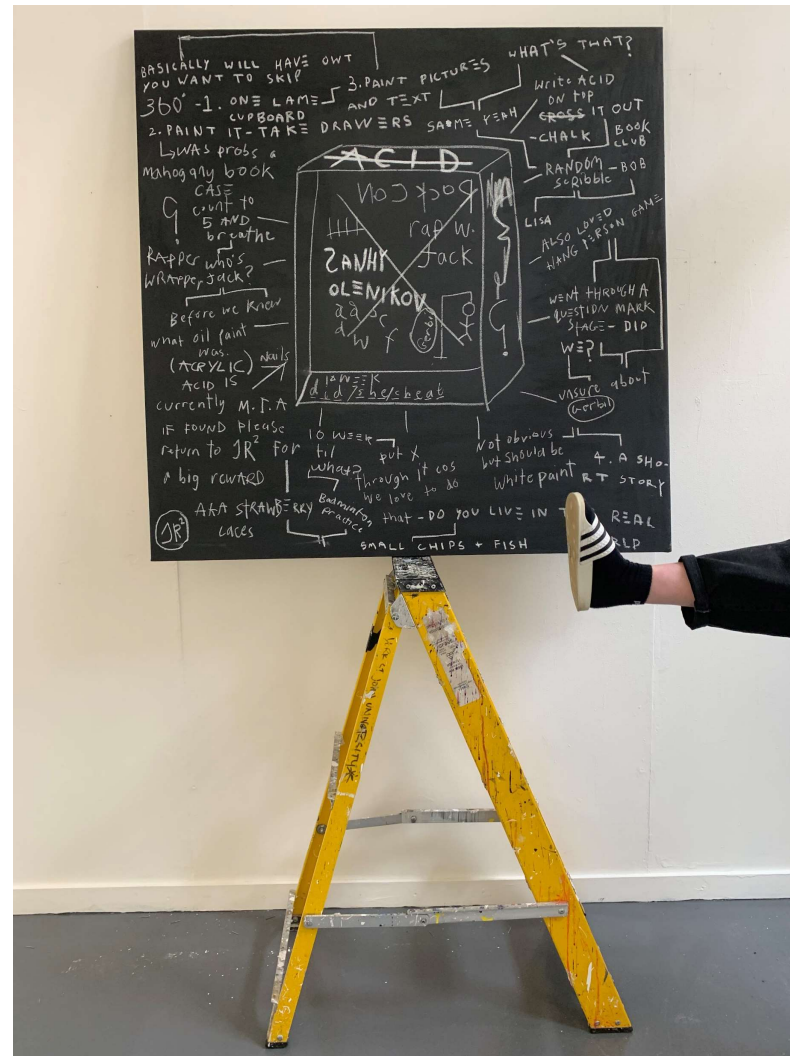 BASICALLY WILL HAVE OWT
YOU WANT TO SKIP
360° -1. ONE LAME
CUPBOARD
2. PAINT IT - TAKE DRAWERS
WAS probs a
mahogany book
CASE
count to
5 AND
breathe
RAPPER who's
WRAPPER Jack?
Before we knew
what oil paint
was.
(ACRYLIC) Nails
ACID IS
currently M.I.A
IF FOUND Please
return to JR² For
a big reward
AKA STRAWBERRY
Laces
JR²
3. PAINT PICTURES
AND TEXT
SAOME YEAH
WHAT'S THAT?
Write ACID
ON TOP
CROSS IT OUT
- CHALK
BOOK
CLUB
RANDOM
scribble - BOB
LISA
ALSO LOVED
HANG PERSON GAME
WENT THROUGH A
QUESTION MARK
STAGE - DID
WE?
unsure about
Gerbil
ACID
Pock Con
raf w.
Jack
ZANHY
OLENIKOV
Gerbil
10 WEEK
did/she/sbeat
10 WEEK
til
what?
Badminton
Practice
put X
through it cos
we love to do
that - DO YOU LIVE IN REAL
RLD
SMALL CHIPS + FISH
Not obvious
but should be
white paint
4. A SHO-
RT STORY